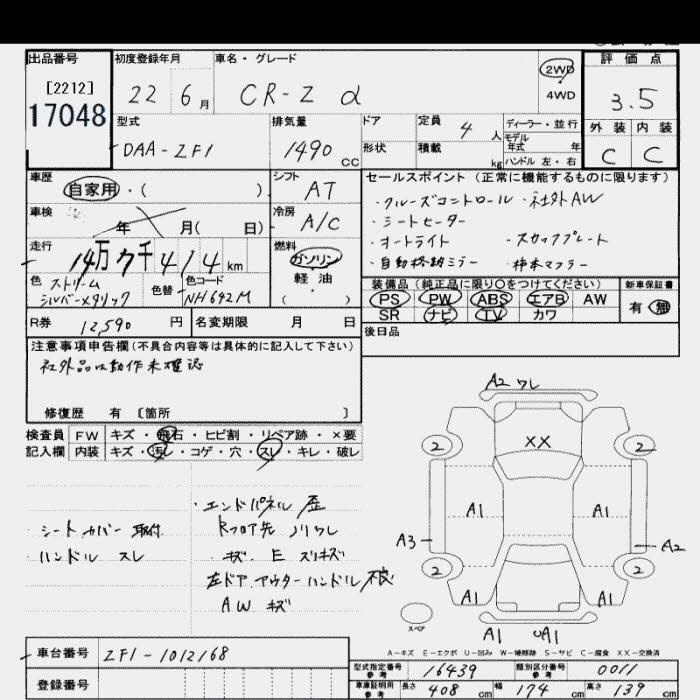 出品番号 初度登録年月 車名・グレード 2WD 評価点
[2212] 22 6月 CR-Z α 4WD 3.5
17048
型式 排気量 ドア 定員 4人 ディーラー・並行 外装 内装
DAA-ZF1 1490cc 形状 積載 kg モデル年式 年 C C
ハンドル 左・右
車歴 シフト セールスポイント(正常に機能するものに限ります)
自家用・( ) AT ・クルーズコントロール ・社外AW
車検 冷房 ・シートヒーター
年 月( 日) A/C ・オートライト ・スカッフプレート
走行 燃料 ・自動格納ミラー ・柿本マフラー
14万7千414km ガソリン
色 ストリームシルバーメタリック 色替 色コード NH692M 軽油 ( )
装備品(純正品に限り○をつけてください) 新車保証書
PS PW ABS エアB AW 有 無
SR ナビ TV カワ
R券 12,590円 名変期限 月 日 後日品
注意事項申告欄(不具合内容等は具体的に記入して下さい)
社外品は動作未確認
修復歴 有 [箇所 ]
検査員 FW キズ・飛石・ヒビ割・リペア跡・×要
記入欄 内装 キズ・汚レ・コゲ・穴・スレ・キレ・破レ
・シートカバー取付
・ハンドルスレ
・エンドパネル歪
Rフロア先 ノリワレ
・キズ E スリキズ
左ドアアウターハンドル不良
AW キズ
A2 ワレ
XX
2 2
A1 A1
A3 A2
2 2
A1 A1
スペア
A1 UA1
A-キズ E-エクボ U-凹み W-補修跡 S-サビ C-腐食 XX-交換済
車台番号 ZF1-1012168
登録番号
型式指定番号 参考 16439 類別区分番号 参考 0011
車庫証明用 参考 長さ 408cm 幅 174cm 高さ 139cm